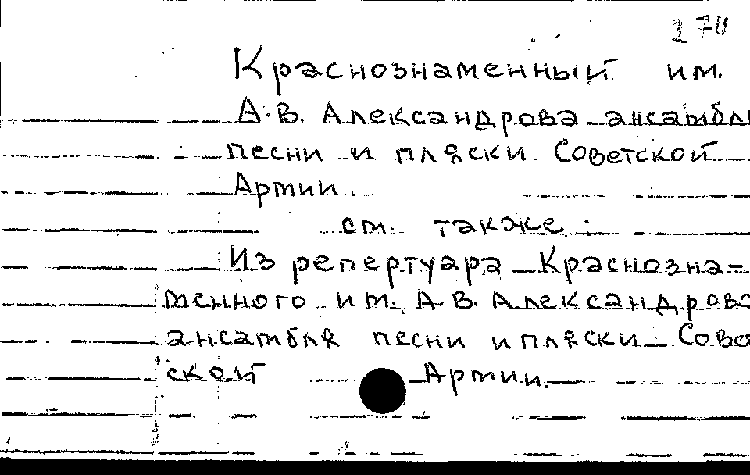 270
Краснознаменный им.
А.В. Александрова ансамбль
песни и пляски Советской
Армии.
см. также:
Из репертуара Краснозна-
менного им. А.В. Александрова
ансамбля песни и пляски Совет
ской Армии.